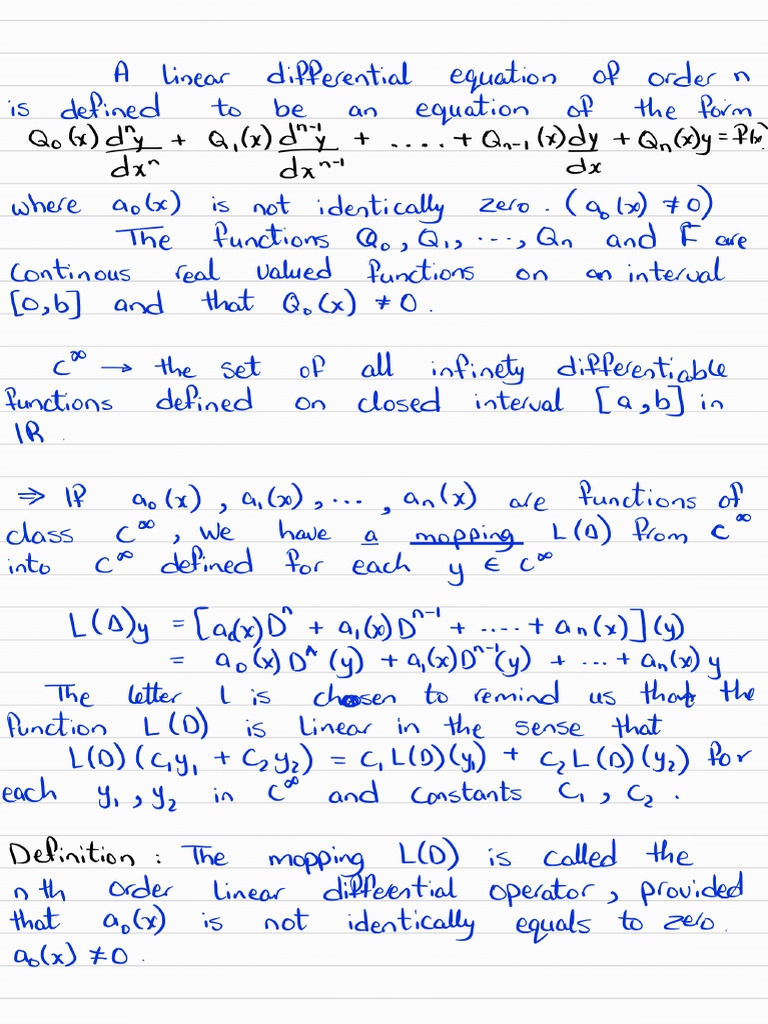 A linear differential equation of order n
is defined to be an equation of the form
Q₀(x) dⁿy/dxⁿ + Q₁(x) dⁿ⁻¹y/dxⁿ⁻¹ + .... + Qₙ₋₁(x) dy/dx + Qₙ(x)y = F(x)
where a₀(x) is not identically zero. (a₀(x) ≠ 0)
The functions Q₀, Q₁, ..., Qₙ and F are
continous real valued functions on an interval
[0,b] and that Q₀(x) ≠ 0.
C^∞ → the set of all infinety differentiable
functions defined on closed interval [a,b] in
IR.
⇒ If a₀(x), a₁(x), ..., aₙ(x) are functions of
class C^∞, we have a mapping L(D) from C^∞
into C^∞ defined for each y ∈ C^∞
L(D)y = [a₀(x)Dⁿ + a₁(x)Dⁿ⁻¹ + .... + aₙ(x)](y)
= a₀(x)Dⁿ(y) + a₁(x)Dⁿ⁻¹(y) + ... + aₙ(x)y
The letter L is chosen to remind us that the
function L(D) is Linear in the sense that
L(D)(c₁y₁ + c₂y₂) = c₁L(D)(y₁) + c₂L(D)(y₂) for
each y₁, y₂ in C^∞ and constants c₁, c₂.
Definition: The mapping L(D) is called the
nth order linear differential operator, provided
that a₀(x) is not identically equals to zero.
a₀(x) ≠ 0.